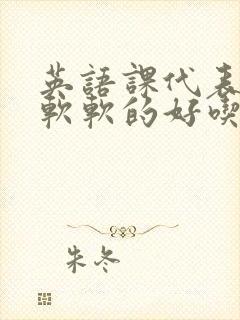 英語課代表
軟軟的好喫
朱冬